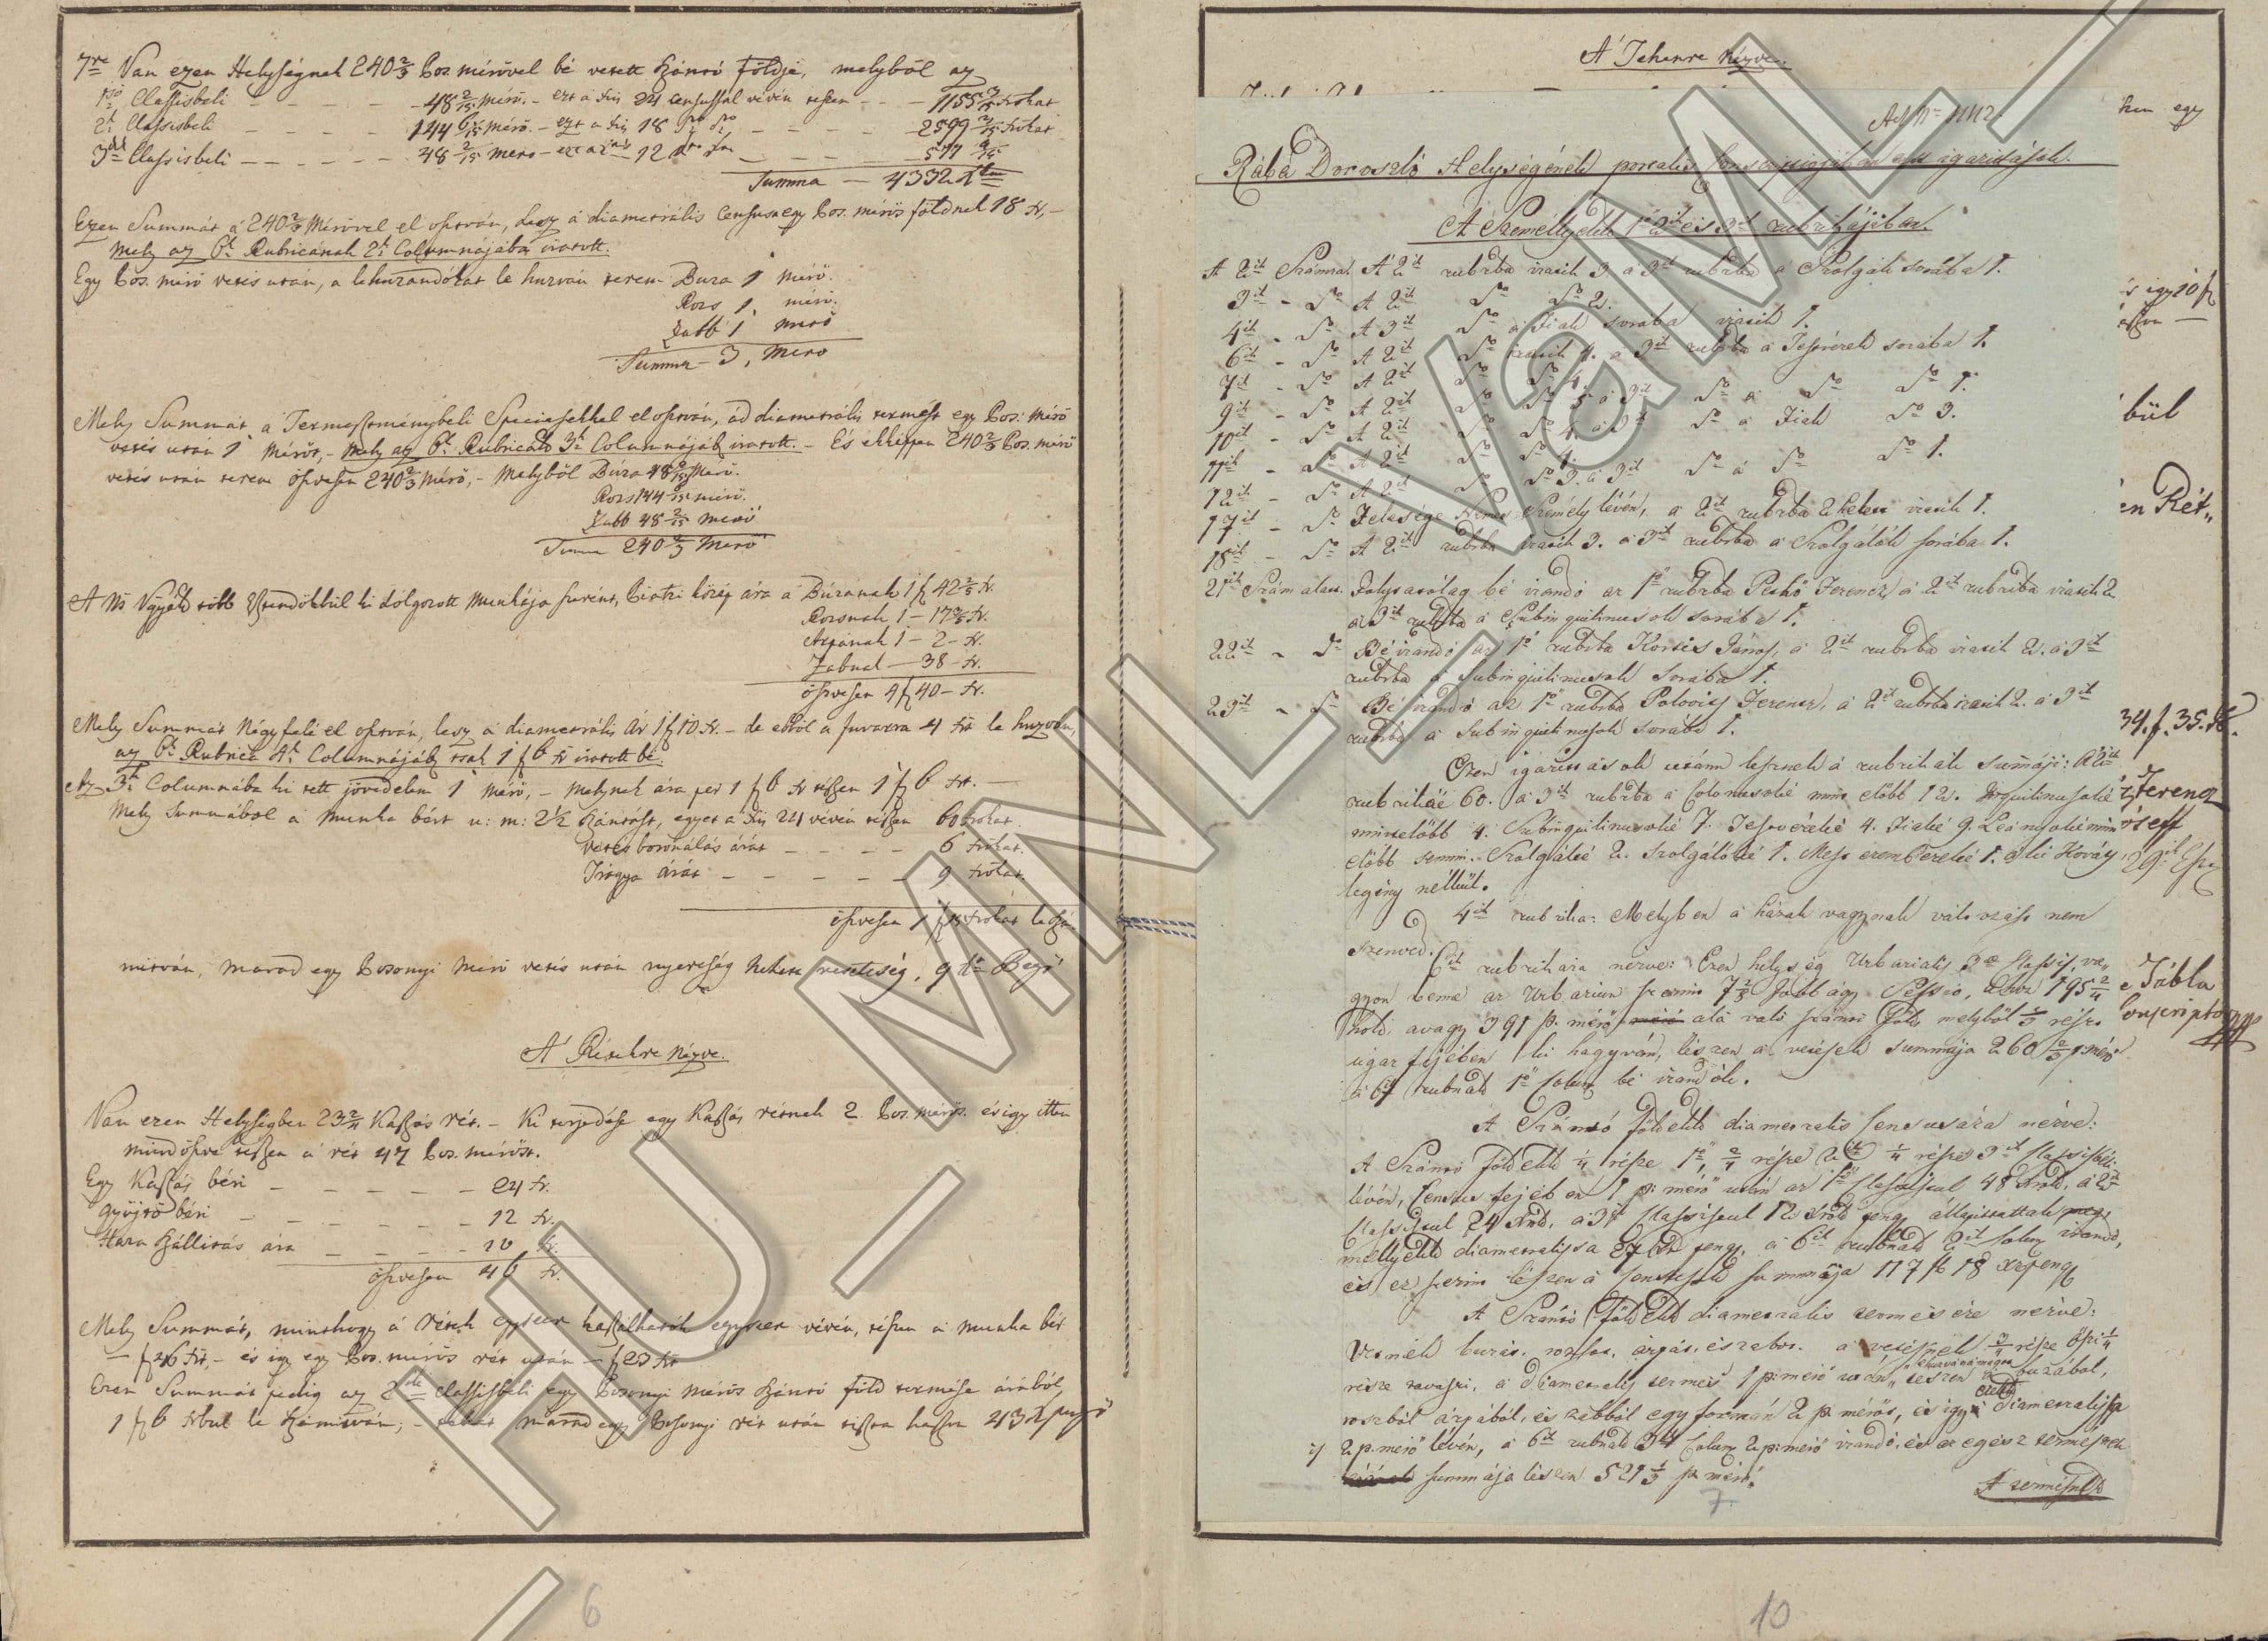 7re Van ezen Helységnek 240 2/3 Pos. mérővel bé vetett Szántó földje, melyből az
1ső Classisbeli - - - - 48 2/15 mérő. - ezt á fts 24 Censussal vévén tészen - - 1155 3/15 krokat
2k Classisbeli - - - - 144 6/15 mérő. - ezt a fts 18 - - - - 2599 3/15 krokat
3dik Classisbeli - - - - - 48 2/15 mero - 12 - - - - 577 9/15
Summa - 4332
Ezen Summát á 240 2/3 Mérővel el osztván, lesz á diametrális Census egy Pos. mérős földnek 18 kr, -
mely az 6k Rubricának 2k Columnájába iratott.
Egy Pos. mérő vetés után, a lehuzandókat le huzván terem Buza 1 mérő.
Rozs 1, mérő.
Zabb 1 merő
Summa - 3, Mero
Mely Summát a Termesztménybeli Speciesekkel el osztván, ád diametrális termést egy Pos: Mérő
vetés után 1 Mérőt, - mely az 6k Rubricák 3k Columnájáb iratott. - És ekképpen 240 2/3 Pos. mérő
vetés után terem öszvesen 240 2/3 Mérő, - Melyből Buza 48 2/15 Merő.
Rozs 144 6/15 mérő.
Zabb 48 2/15 Merő
Summa 240 2/3 Merő
A Ns Vgyék több Esztendőkbül ki dólgozott Munkája szerént, Piatzi közép ára a Búzának 1 f 42 2/5 kr.
Rozsnak 1 - 17 3/5 kr.
Árpának 1 - 2 - kr.
Zabnak - 38 - kr.
öszvesen 4 f 40 - kr.
Mely Summát Négy felé el osztván, lesz á diametrális ár 1 f 10 kr. - de ebből a fuvarra 4 kr le huzván,
az 6k Rubrica 4k Columnájáb tsak 1 f 6 kr iratott bé.
Az 3k Columnába ki tett jövedelem 1 mérő, - melynek ára per 1 f 6 kr tészen 1 f 6 kr. -
Mely Summából a munka bért u: m: 2 1/2 szántást, egyet á fts 24 vévén tészen 60 krokat.
Vetés boronálás árát - - - - 6 krokat.
Trágya árát - - - - - 9 krokat
öszvesen 1 f 15 krokat leszá-
mitván, marad egy Posonyi mérő vetés után nyereség helyett veszteség, 9 kr
A' Rétekre Nézve.
Van ezen Helységben 23 2/4 Kaszás rét. - Ki terjedése egy Kaszás rétnek 2 Pos. mérős. és igy itten
mind öszve tészen á rét 47 Pos. mérőst.
Egy Kaszás béri - - - - - 24 kr.
gyűjtő béri - - - - - - 12 kr.
Haza Szállitás ára - - - - 10 kr.
öszvesen 46 kr.
Mely Summát, minthogy á Rétek egyszer kaszálhatók egyszer vévén, tészen á munka bér
- f 46 kr, - és igy egy Pos. mérős rét után - f 23 kr
Ezen Summát pedig az 2dik Classisbeli egy Posonyi mérős Szántó föld termése árából,
1 f 6 krbul le számitván, - tehát marad egy Posonyi rét után tiszta haszon 43
A' Tehenre Nézve.
Ad Nr 1112
Rába Doroszló Helységének portalis Conscriptiojában való igazitások.
A Személlyekk 1ő 2ik és 3ik rubrikájiban.
A 2ik Számnál A 2ik rubrba iratik 3. a 3ik rubrba a Szolgák sorába 1.
3ik - do A 2ik do do 2.
4ik - do A 3ik do a Fiak sorába iratik 1.
6ik - do A 2ik do iratik 4. a 3ik rubrba a Testvérek sorába 1.
7ik - do A 2ik do do 4.
9ik - do A 2ik do do 5 a 3ik do a do do 1.
10ik - do A 2ik do do 4. a 3ik do a Fiak do 3.
11ik - do A 2ik do do 4.
12ik - do A 2ik do do 3. a 3ik do a do do 1.
17ik - do Felesége Nemes Személy lévén, a 2ik rubrba 2 helett iratik 1.
18ik - do A 2ik rubrba iratik 3. a 3ik rubrba a Szolgálók sorába 1.
21ik Szám alatt. Folytatólag bé irandó az 1ő rubrba Peskó Ferencz, a 2ik rubrikba iratik 2
a 3ik rubrba a Subinquilinusok sorába 1.
22ik - do Bé irandó az 1ő rubrba Kocsis János, a 2ik rubrba iratik 2. a 3ik
rubrba a Subinquilinusok sorába 1.
23ik - do Bé irandó az 1ő rubrba Polovits Ferencz, a 2ik rubrba iratik 2. a 3ik
rubrba a Subinquilinusok sorába 1.
Ezen igazitások utánn lesznek a rubrikák summáji: A 2ik
rubrikáé 60. a 3ik rubrba a Colonusoké mint előbb 12. Inquilinusoké
mintelőbb 4. Subinquilinusoké 7. Testvéreké 4. Fiaké 9. Leányoké mint
előbb semmi. Szolgáké 2. szolgálóké 1. Mester embereké 1. a ki Kovács
legény nélkül.
4ik rubrika: Melyben a házak vagynak változást nem
szenved.
6ik rubrikára nézve: Ezen helység Urbarialis 3ae Classis, va-
gyon benne az Urbarium szerint 7 2/8 Jobbágy Sessio, ahoz 195 2/4
hold, avagy 391 p. mérő alá való szántó föld, melyből 1/3 rész
úgar fejében ki hagyván, lészen a vetések summája 260 2/3 p. mérő
a 6ik rubnak 1ő Colum bé irandók.
A Szántó földekk diametralis Censusára nézve:
A Szántó földekk 1/4 része 1ő, 2/4 része 2ik, 1/4 része 3ik Classisbéli
lévén, Census fejében 1 p: mérő után az 1ő Classisbul 48 krokk, a 2ik
Classisbul 24 krokk, a 3ik Classisbul 12 krokk pengő állapittattak
mellyekk diametralissa 27 kr peng, a 6ik rubnak 2ik Colum irandó,
és ez szerint lészen a Censusokk summája 117 f 18 xr peng
A Szántó földekk diametralis termésére nézve:
Vetnek buzát, rozsot, árpát, és zabot. a vetésnek 3/4 része őszi 1/4
része tavaszi, a diametralis termés 1 p: mérő után, lészen buzából,
rozsból árpából, és zabból egyformán 2 p. mérős, és igy ezekk diametralissa
2 p. mérő lévén, a 6ik rubnak 3ik Colum 2 p: mérő irandó, és az egész termések
summája lészen 521 1/3 p. mérő.
A termésnek
7
egy
és igy 10 f
bül
en Rét,,
34. f. 35. kr.
Ferencz
e Tábla
6
10